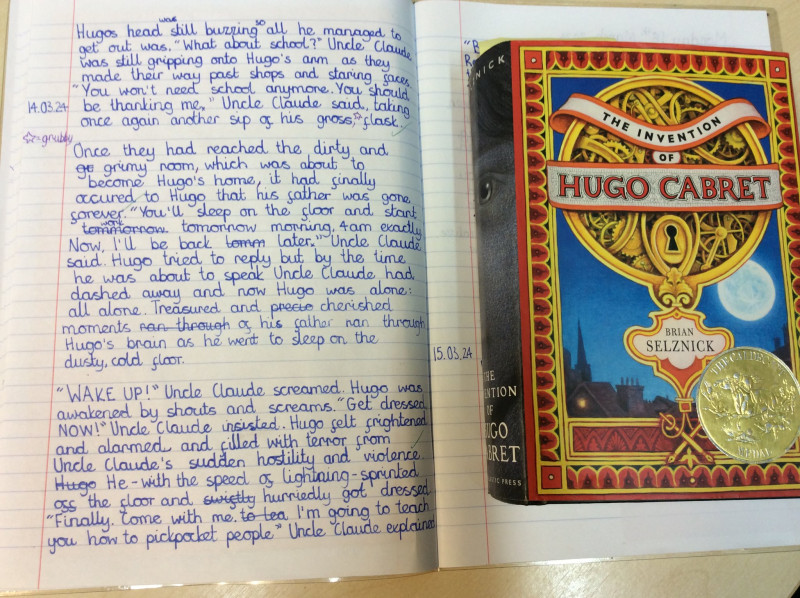 was so
Hugos head still buzzing all he managed to
get out was. "What about school?" Uncle Claude
was still gripping onto Hugo's arm as they
made their way past shops and staring faces
"You won't need school anymore. You should
14.03.24 be thanking me," Uncle Claude said, taking
once again another sip of his gross, flask.
=grubby
Once they had reached the dirty and
go grimy room, which was about to
become Hugo's home, it had finally
occured to Hugo that his father was gone
forever. "You'll sleep on the floor and start
work
tommorrow. tomorrow morning, 4am exactly
Now, I'll be back tomm later." Uncle Claude
said. Hugo tried to reply but by the time
he was about to speak Uncle Claude had
dashed away and now Hugo was alone:
all alone. Treasured and presio cherished
moments ran through of his father ran through
Hugo's brain as he went to sleep on the
dusty, cold floor.
"WAKE UP!" Uncle Claude screamed. Hugo was
awakened by shouts and screams. "Get dressed
NOW!" Uncle Claude insisted. Hugo felt frightened
and alarmed and filled with terror from
Uncle Claude's sudden hostility and violence.
Hugo He-with the speed of lightning-sprinted
off the floor and swiftly hurriedly got dressed
"Finally. Come with me. to tea I'm going to teach
you how to pickpocket people." Uncle Claude explained
15.03.24
THE INVENTION
OF
HUGO CABRET
BRIAN
SELZNICK
THE CALDECOTT
MEDAL
THE
INVENTION
OF
HUGO
CABRET